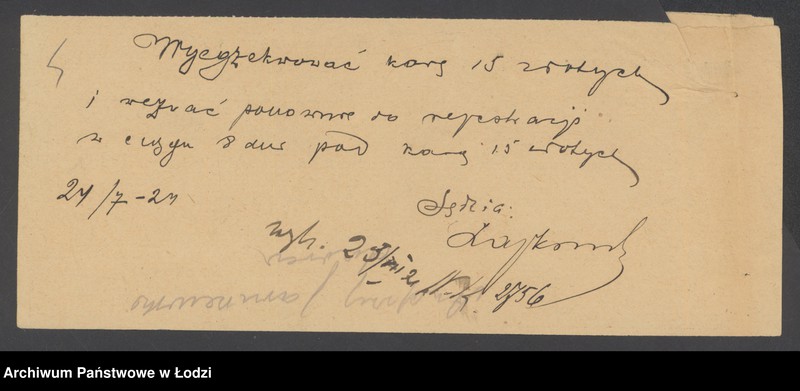 Wyegzekwować karę 15 złotych
i wezwać ponownie do rejestracji
w ciągu 8 dni pod karą 15 złotych
24/7-24
Sędzia:
wysł. 25/VII 24
2756
Archiwum Państwowe w Łodzi